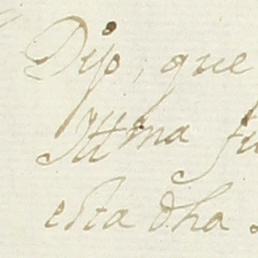 Dijo, que
Ittma fu
esta dha